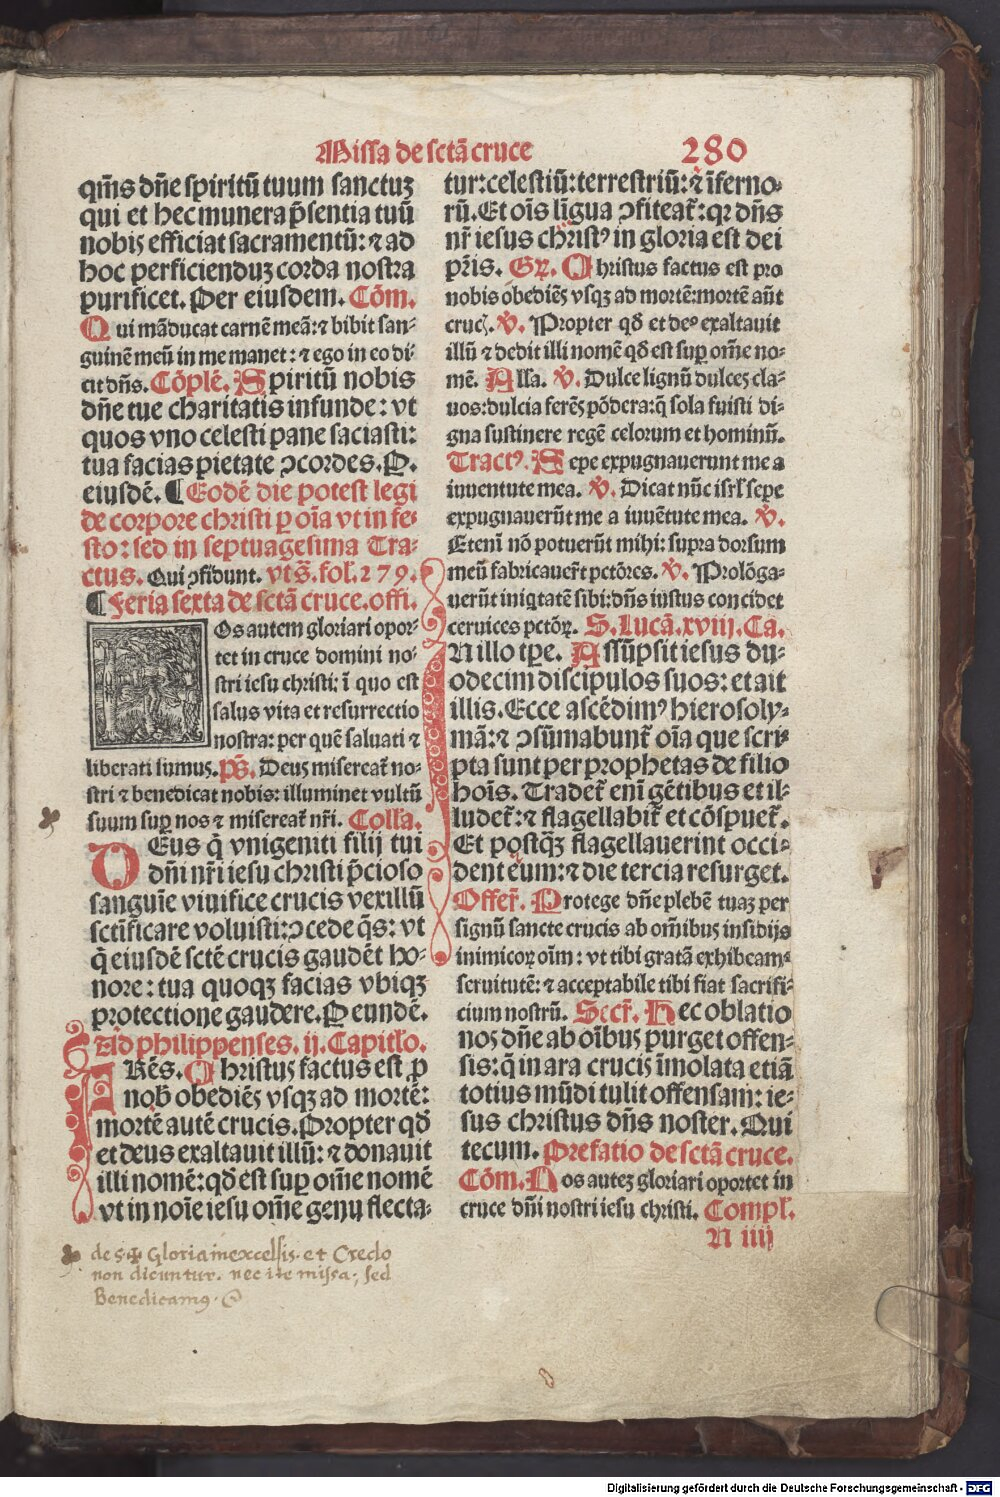 Missa de sctã cruce 280
qm̃s dñe spiritũ tuum sanctuʒ
qui et hec munera p̃sentia tuũ
nobis efficiat sacramentũ: ⁊ ad
hoc perficienduʒ corda nostra
purificet. Per eiusdem. Cõm.
Qui mãducat carnẽ meã: ⁊ bibit san-
guinẽ meũ in me manet: ⁊ ego in eo di-
cit dñs. Cõplẽ. Spiritũ nobis
dñe tue charitatis infunde: vt
quos vno celesti pane saciasti:
tua facias pietate ꝯcordes. P.
eiusdẽ. ¶ Eodẽ die potest legi
de corpore christi ꝑ oĩa vt in fe-
sto: sed in septuagesima Tra-
ctus. Qui ꝯfidunt. vt s̃. fol. 279.
¶ Feria sexta de sctã cruce. offi.
Nos autem gloriari opor-
tet in cruce domini no-
stri iesu christi: ĩ quo est
salus vita et resurrectio
nostra: per quẽ saluati ⁊
liberati sumus. ps̃. Deus misereat̃ no-
stri ⁊ benedicat nobis: illuminet vultũ
suum suꝑ nos ⁊ misereat̃ nr̃i. Coll'a.
DEus q̃ vnigeniti filij tui
dñi nr̃i iesu christi p̃cioso
sanguĩe viuifice crucis vexillũ
sctĩficare voluisti: ꝯcede q̃s: vt
q̃ eiusdẽ sctẽ crucis gaudẽt ho-
nore: tua quoqʒ facias vbiqʒ
protectione gaudere. P eundẽ.
Ad philippenses. ij. Capitl'o.
FRẽs. Christus factus est ꝓ
nob̃ obediẽs vsqʒ ad mortẽ:
mortẽ autẽ crucis. Propter qd̃
et deus exaltauit illũ: ⁊ donauit
illi nomẽ: qd̃ est suꝑ om̃e nomẽ
vt in noĩe iesu om̃e genu flecta-
tur: celestiũ: terrestriũ: ⁊ ĩferno-
rũ. Et oĩs lĩgua ꝯfiteat̃: qꝛ dñs
nr̃ iesus christꝰ in gloria est dei
pr̃is. Gꝛ. Christus factus est pro
nobis obediẽs vsqʒ ad mortẽ: mortẽ aũt
cruc̃. ꝟ. Propter qd̃ et deꝰ exaltauit
illũ ⁊ dedit illi nomẽ qd̃ est suꝑ om̃e no-
mẽ. All'a. ꝟ. Dulce lignũ dulces cla-
uos: dulcia ferẽs põdera: q̃ sola fuisti di-
gna sustinere regẽ celorum et hominũ.
Tractꝰ. Sepe expugnauerunt me a
iuuentute mea. ꝟ. Dicat nũc isrl' sepe
expugnauerũt me a iuuẽtute mea. ꝟ.
Etenĩ nõ potuerũt mihi: supra dorsum
meũ fabricauer̃t pctõres. ꝟ. Prolõga-
uerũt iniq̃tatẽ sibi: dñs iustus concidet
ceruices pctõꝝ. S. Lucã. xviij. Ca.
IN illo tp̃e. Assũpsit iesus du-
odecim discipulos suos: et ait
illis. Ecce ascẽdimꝰ hierosoly-
mã: ⁊ ꝯsũmabunt̃ oĩa que scri-
pta sunt per prophetas de filio
hoĩs. Tradet̃ enĩ gẽtibus et il-
ludet̃: ⁊ flagellabit̃ et cõspuet̃.
Et postq̃ʒ flagellauerint occi-
dent eum: ⁊ die tercia resurget.
Offer̃. Protege dñe plebẽ tuaʒ per
signũ sancte crucis ab om̃ibus insidijs
inimicoꝝ oĩm: vt tibi gratã exhibeamꝰ
seruitutẽ: ⁊ acceptabile tibi fiat sacrifi-
cium nostrũ. Secr̃. Hec oblatio
nos dñe ab oĩbus purget offen-
sis: q̃ in ara crucis ĩmolata etiã
totius mũdi tulit offensam: ie-
sus christus dñs noster. Qui
tecum. Prefatio de sctã cruce.
Cõm. Nos auteʒ gloriari oportet in
cruce dñi nostri iesu christi. Compl'.
N iiij
de S ✠ Gloria in excelsis et Credo
non dicuntur. nec ite missa, sed
Benedicamꝰ.
Digitalisierung gefördert durch die Deutsche Forschungsgemeinschaft - DFG